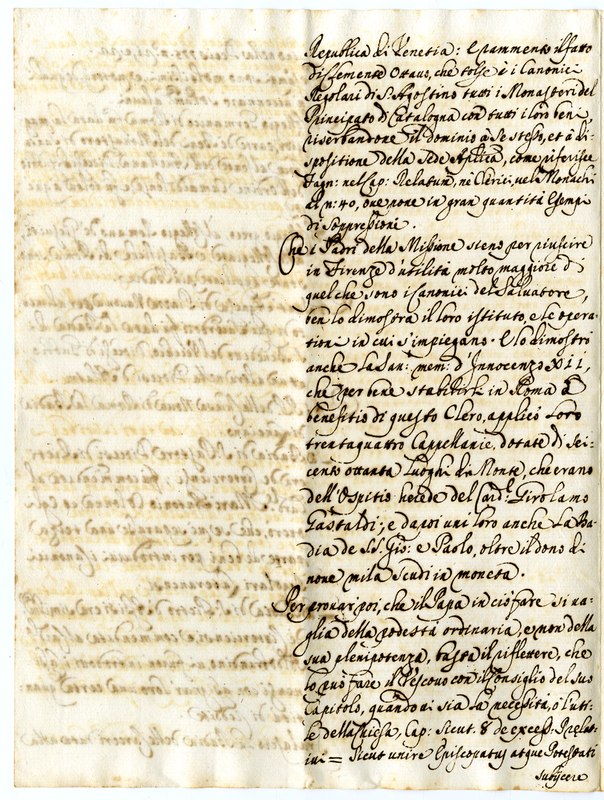 Republica di Venetia: e parimente il fatto
di Clemente Ottavo, che tolse à i Canonici
Regolari di S. Agostino tutti i Monasteri del
Principato di Catalogna con tutti i loro beni,
riserbandone il dominio à Se stesso, et à di-
spositione della Sede Aplica, come riferisce
Fagn: nel Cap: Relatum, ne Clerici, vel Monachi
al n: 40, ove pone in gran quantità Esempi
di Soppressioni.
Che i Padri della Missione sieno per riuscire
in Firenze d'utilità molto maggiore di
quel che sono i Canonici del Salvatore,
ben lo dimostra il loro istituto, e le opera-
tioni in cui s'impiegano. E lo dimostrò
anche la San: mem: d'Innocenzo XII,
che per bene stabilirli in Roma à
benefitio di questo Clero, applicò loro
trentaquattro Cappellanie, dotate di Sei-
cento ottanta Luoghi di Monte, che erano
dell'Ospitio herede del Card.l Girolamo
Gastaldi; e dapoi unì loro anche la Ba-
dia de SS. Gio: e Paolo, oltre il dono di
nove mila scudi in moneta.
Per provar poi, che il Papa in ciò fare si va-
glia della podestà ordinaria, e non della
sua plenipotenza, basta il riflettere, che
lo può fare il Vescovo con il consiglio del suo
Capitolo, quando vi sia la necessità, ò l'uti-
le della Chiesa, Cap: Sicut. 8 de excess: Prelat
ivi = Sicut unire Episcopatus atque Potestati
subijcere